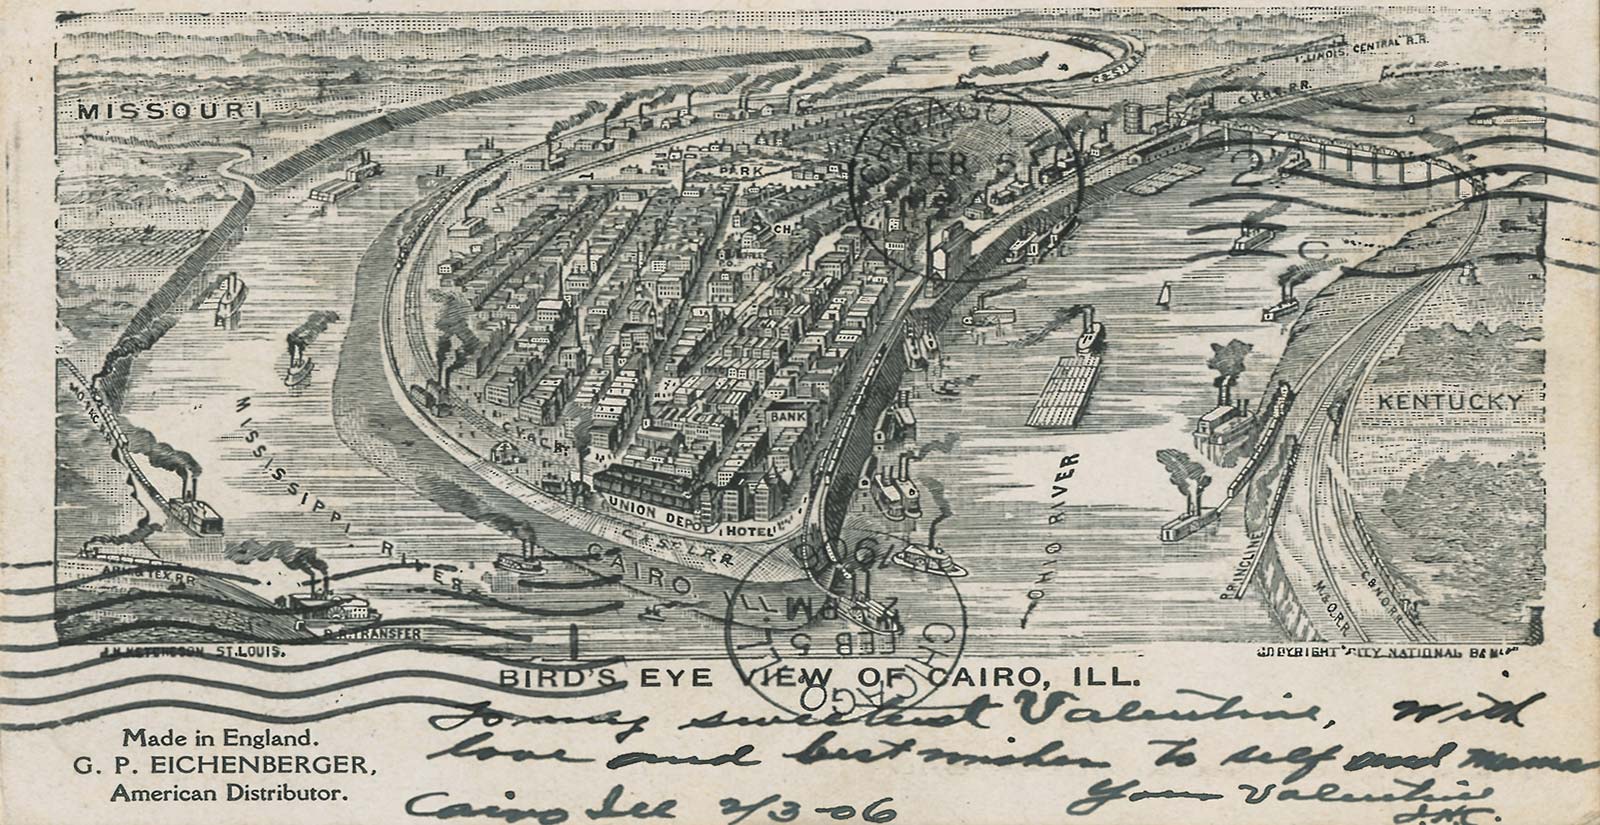 ILLINOIS CENTRAL R.R.
C & St L R.R.
C.V.& C. R.R.
MISSOURI
CHICAGO
FEB 5
2
C
PARK
CH.
P.O.
KENTUCKY
BANK
MISSISSIPPI RIVER
C.V.& C. R.
OHIO RIVER
UNION DEPOT
HOTEL
C. & ST. L. R.R.
CAIRO.
ARK & TEX. R.R.
R.R. TRANSFER
B.R. INCLINE
M. & O. R.R.
C. & N. O. R.R.
CHICAGO, ILL.
FEB 5
2 PM
1906
ST. LOUIS.
COPYRIGHT "CITY NATIONAL BANK"
BIRD'S EYE VIEW OF CAIRO, ILL.
To my sweetest Valentine, with
love and best wishes to self and mama
Your Valentine
Cairo Ill 2/3-06
Made in England.
G. P. EICHENBERGER,
American Distributor.